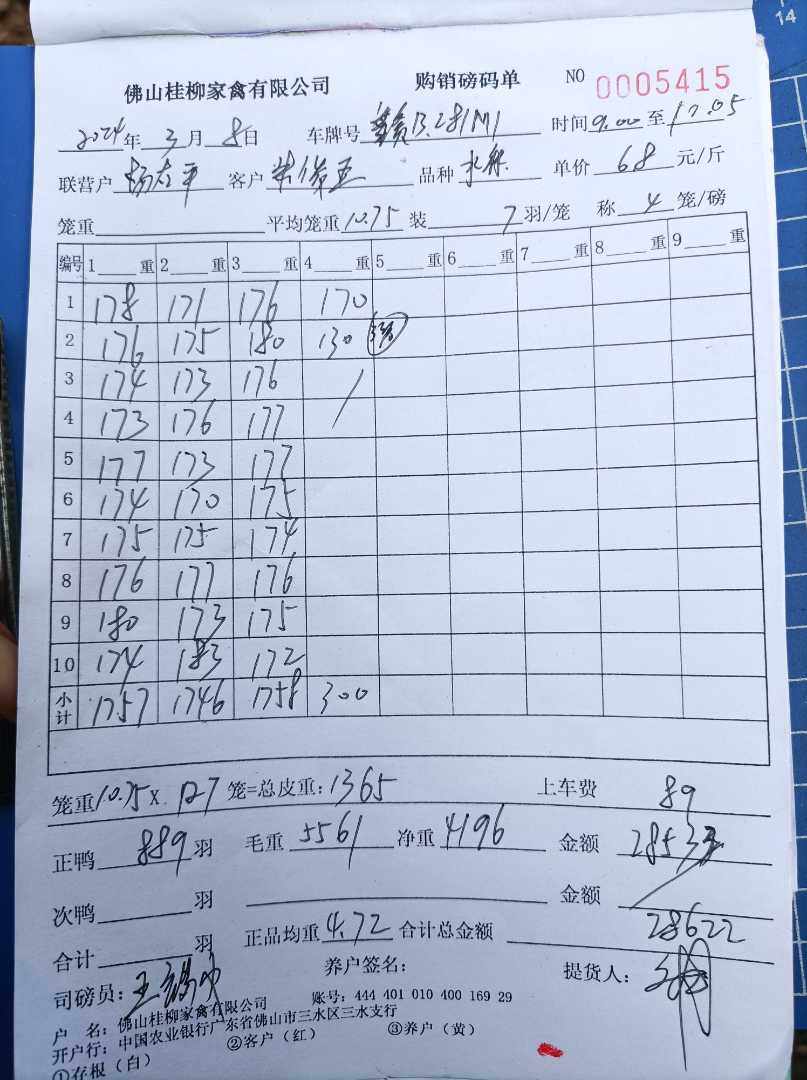 14
佛山桂柳家禽有限公司 购销磅码单 NO 0005415
2024年3月8日 车牌号 赣B.281M1 时间9.00至17.05
联营户 客户 品种 单价 6.8 元/斤
笼重 平均笼重10.75 装 7 羽/笼 称 4 笼/磅
编号 1 重 2 重 3 重 4 重 5 重 6 重 7 重 8 重 9 重
1 178 171 176 170
2 176 175 180 130
3 174 173 176 /
4 173 176 177
5 177 173 177
6 174 170 175
7 175 175 174
8 176 177 176
9 180 173 175
10 174 183 172
小计 1757 1746 1758 300
笼重10.75X 127 笼=总皮重:1365 上车费 89
正鸭 889 羽 毛重 5561 净重 4196 金额 28533
次鸭 羽 金额 /
合计 羽 正品均重4.72 合计总金额 28622
司磅员: 养户签名: 提货人:
户 名: 佛山桂柳家禽有限公司 账号: 444 401 010 400 169 29
开户行: 中国农业银行广东省佛山市三水区三水支行
①存根（白） ②客户（红） ③养户（黄）